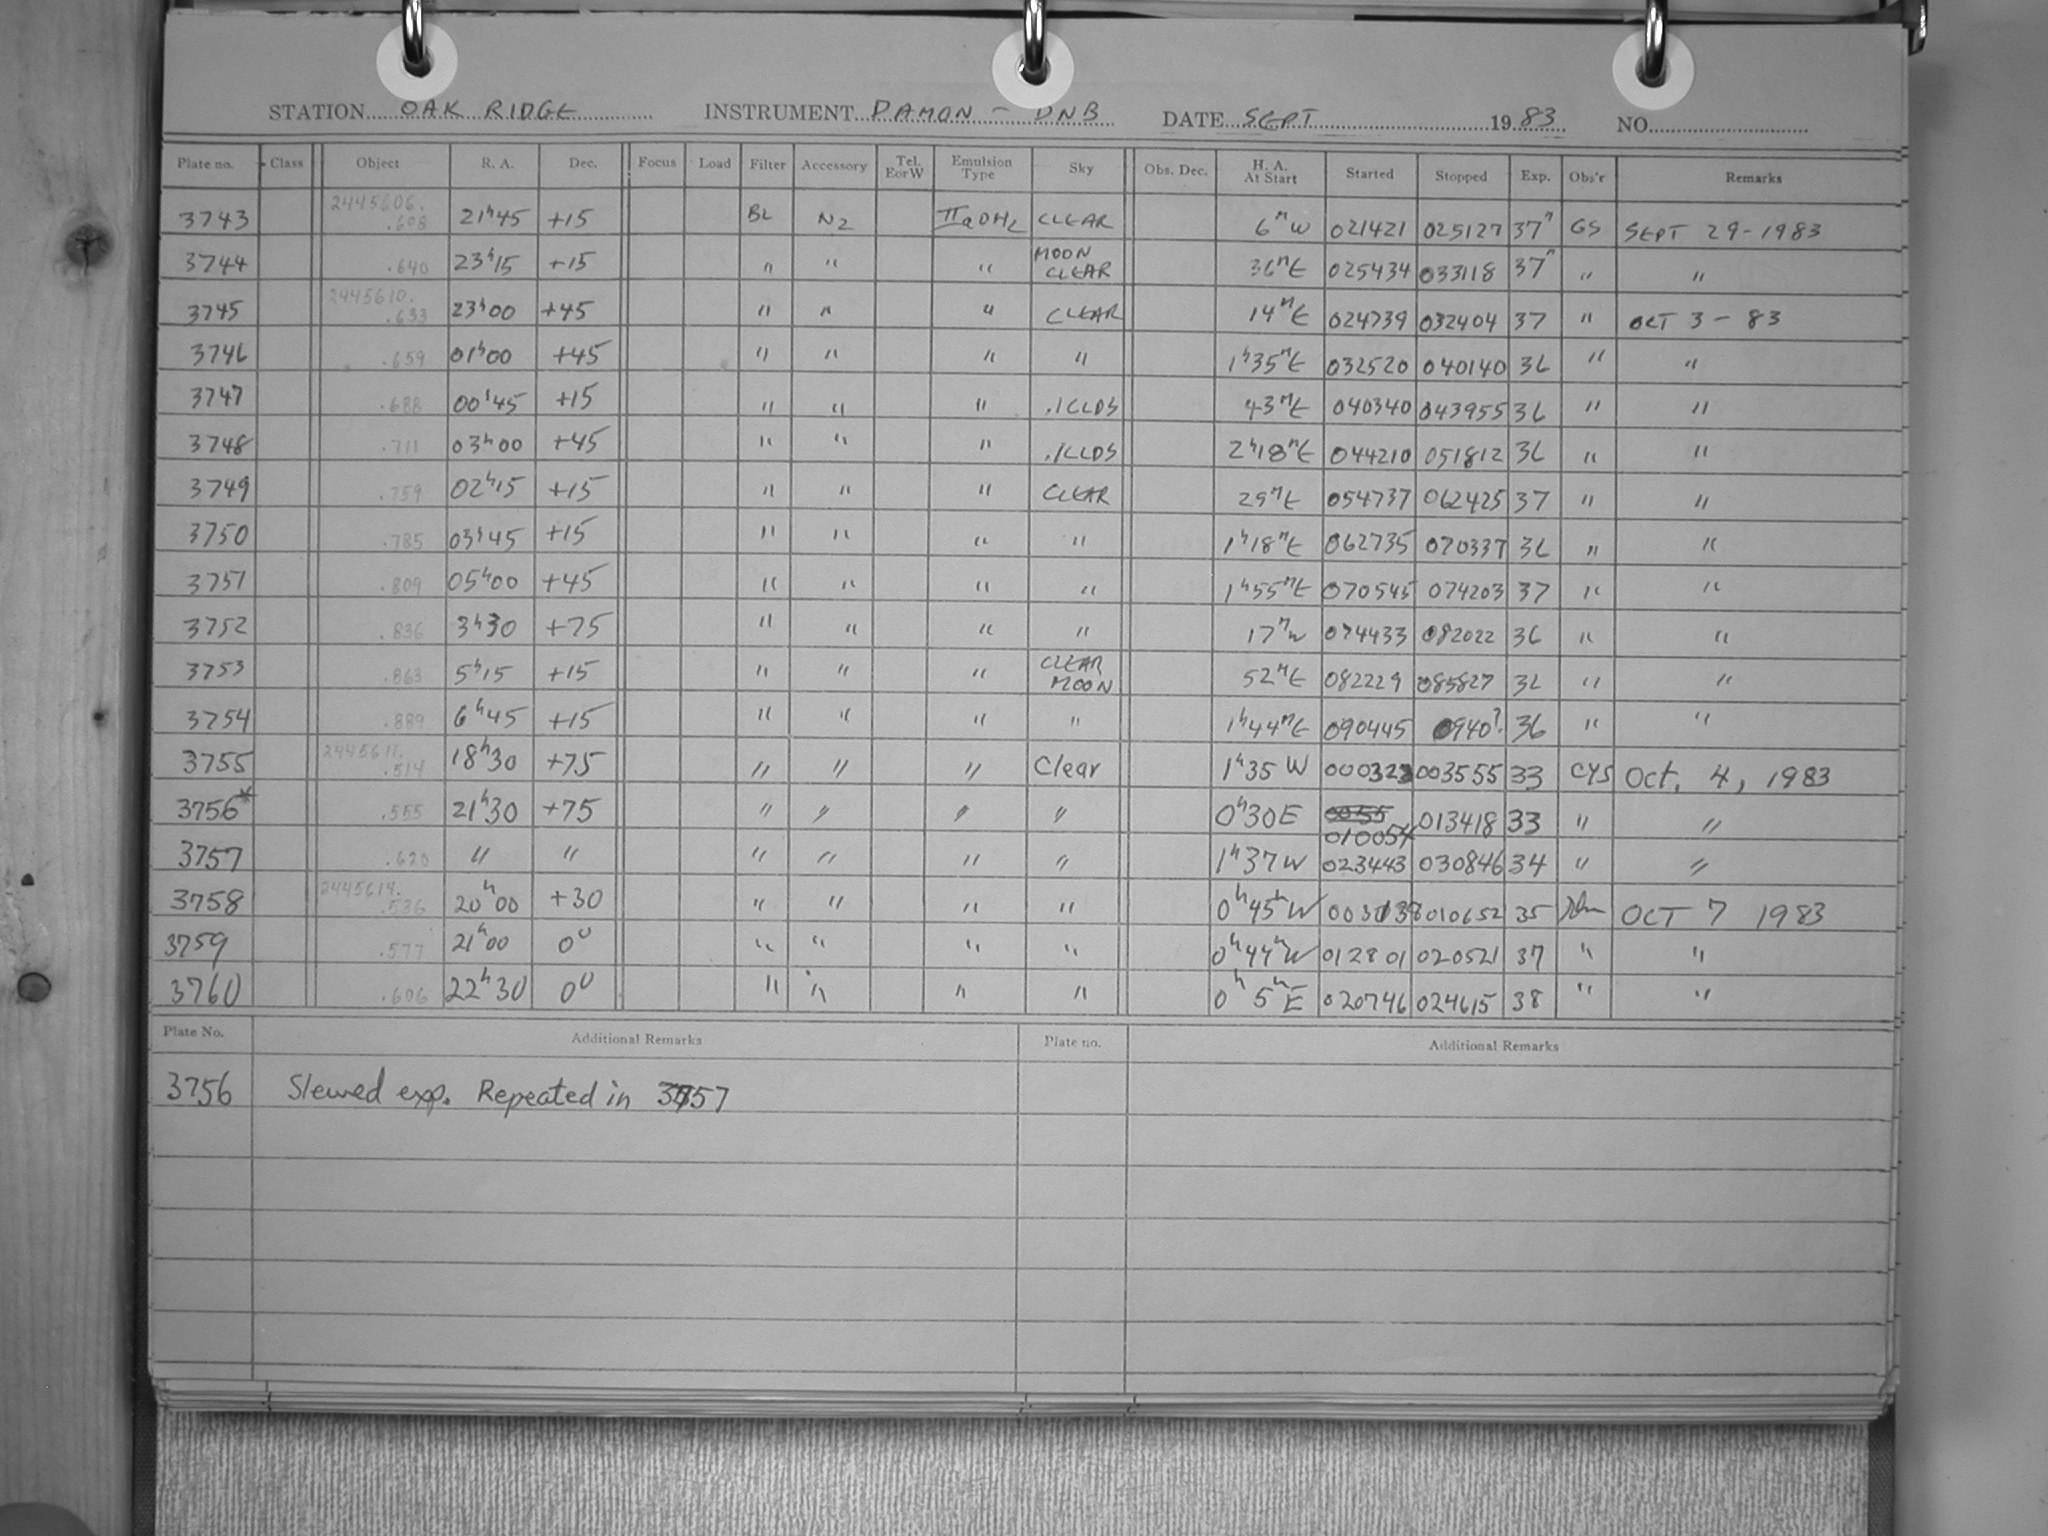 STATION OAK RIDGE INSTRUMENT DAMON - DNB DATE SEPT 1983 NO.
Plate no. Class Object R. A. Dec. Focus Load Filter Accessory Tel. E or W Emulsion Type Sky Obs. Dec. H. A. At Start Started Stopped Exp. Obs'r Remarks
3743 2445606.608 21h45 +15 BL N2 IIaOH2 CLEAR 6m W 021421 025127 37m GS SEPT 29-1983
3744 .640 23h15 +15 " " " MOON CLEAR 36m E 025434 033118 37m " "
3745 2445610.633 23h00 +45 " " " CLEAR 14m E 024739 032404 37 " OCT 3 - 83
3746 .659 01h00 +45 " " " " 1h35m E 032520 040140 36 " "
3747 .688 00h45 +15 " " " .1CLDS 43m E 040340 043955 36 " "
3748 .711 03h00 +45 " " " .1CLDS 2h18m E 044210 051812 36 " "
3749 .759 02h15 +15 " " " CLEAR 29m E 054737 062425 37 " "
3750 .785 03h45 +15 " " " " 1h18m E 062735 070337 36 " "
3751 .809 05h00 +45 " " " " 1h55m E 070545 074203 37 " "
3752 .836 3h30 +75 " " " " 17m W 074433 082022 36 " "
3753 .863 5h15 +15 " " " CLEAR MOON 52m E 082229 085827 36 " "
3754 .889 6h45 +15 " " " " 1h44m E 090445 0940? 36 " "
3755 2445611.514 18h30 +75 " " " Clear 1h35 W 000323 003555 33 CYS Oct. 4, 1983
3756* .555 21h30 +75 " " " " 0h30 E 0055 010054 013418 33 " "
3757 .620 " " " " " " 1h37 W 023443 030846 34 " "
3758 2445614.536 20h00 +30 " " " " 0h45m W 003138 010652 35 OCT 7 1983
3759 .577 21h00 0° " " " " 0h44m W 012801 020521 37 " "
3760 .606 22h30 0° " " " " 0h 5m E 020746 024615 38 " "
Plate No. Additional Remarks Plate no. Additional Remarks
3756 Slewed exp. Repeated in 3757